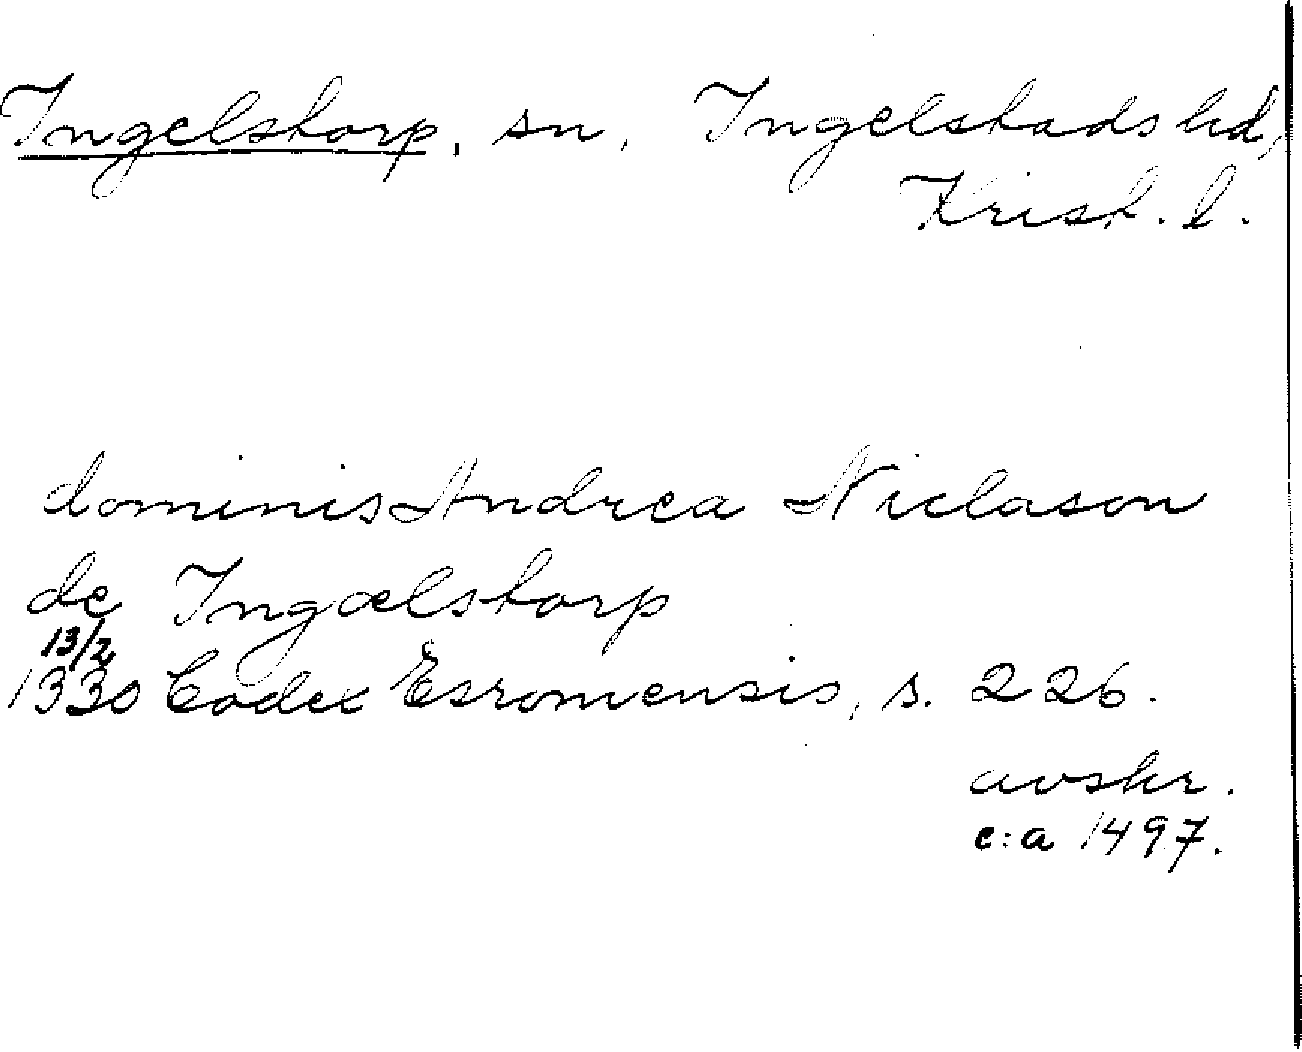 Ingelstorp, sn, Ingelstads hd,
Krist. l.
dominis Andrea Niclason
de Ingælstorp
13/2
1330 Codex Esromensis, s. 226.
avskr.
c:a 1497.